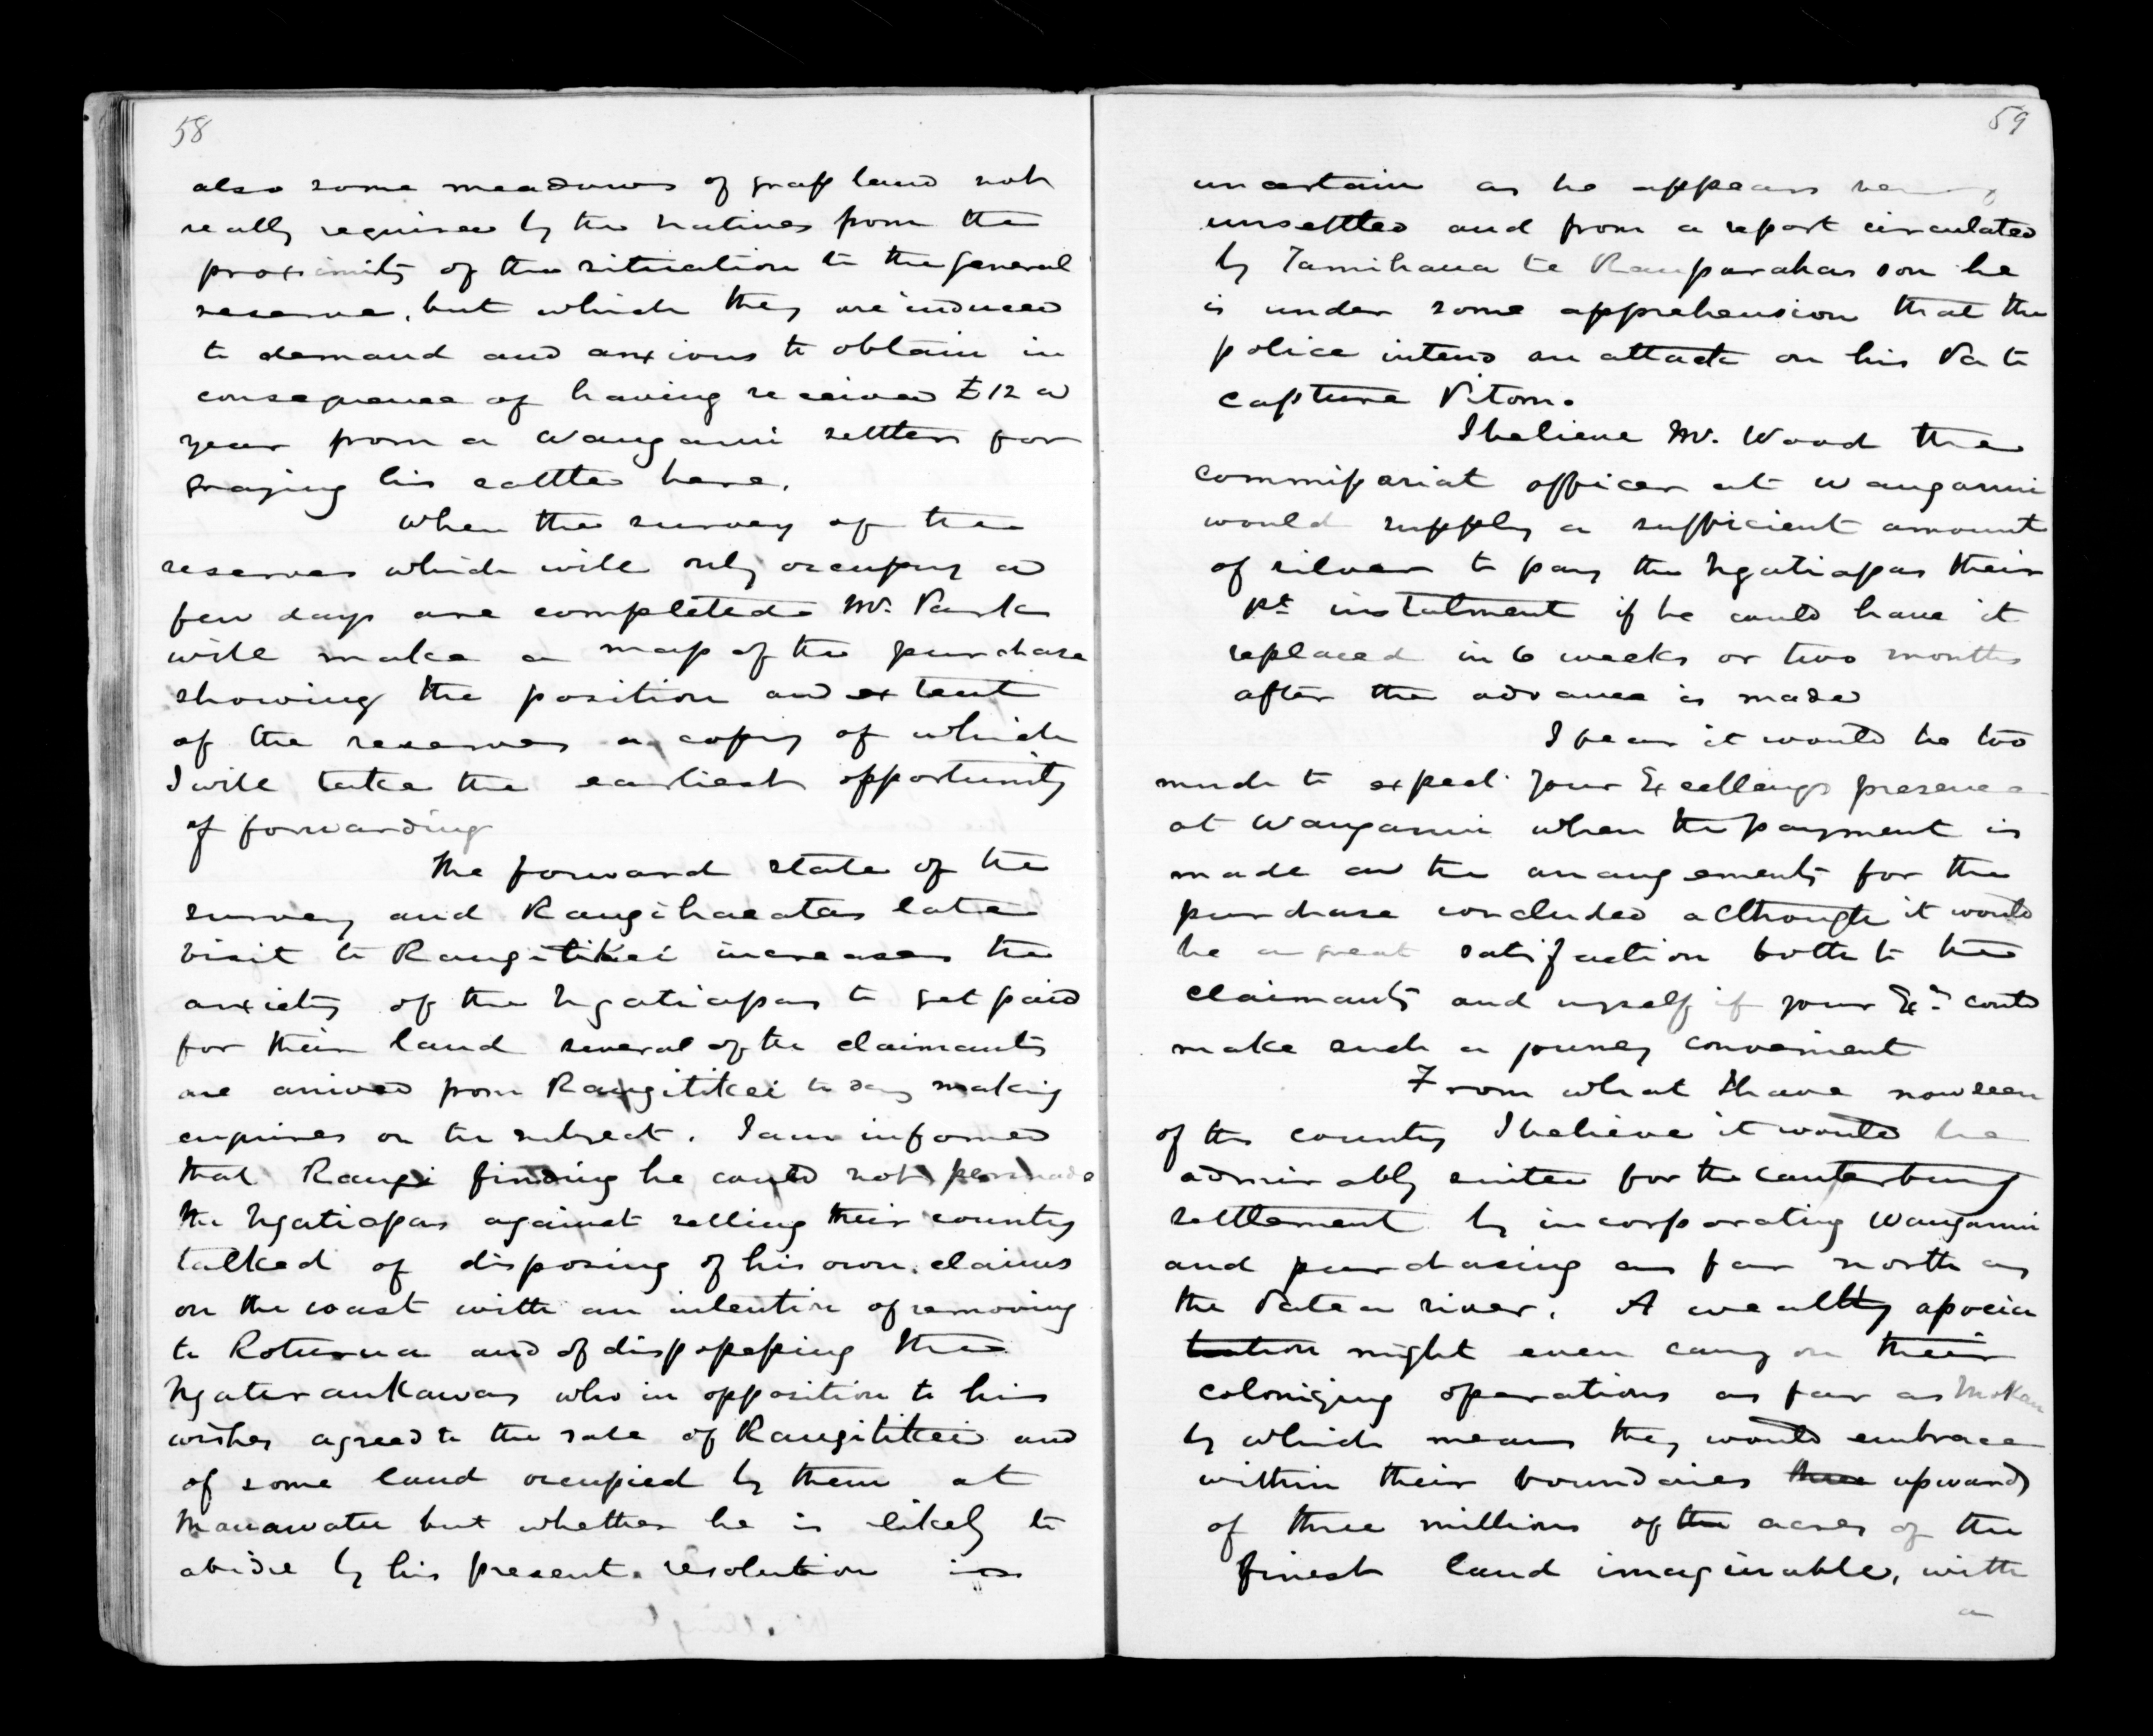 58
also some meadows of grass land not
really required by the natives from the
proximity of the situation to the general
reserve, but which they are induced
to demand and anxious to obtain in
consequence of having received £12 a
year from a Wanganui settler for
grazing his cattle here.
When the survey of the
reserves which will only occupy a
few days are completed Mr. Park
will make a map of the purchase
showing the position and extent
of the reserves a copy of which
I will take the earliest opportunity
of forwarding
The forward state of the
survey and Rangihaeatas late
visit to Rangitikei increases the
anxiety of the Ngatiapas to get paid
for their land several of the claimants
are arrived from Rangitikei to day making
enquiries on the subject. I am informed
that Rangi finding he could not persuade
the Ngatiapas against selling their country
talked of disposing of his own claims
on the coast with an intention of removing
to Roturua and of dispossessing the
Ngateraukawas who in opposition to his
wishes agreed to the sale of Rangitikei and
of some land occupied by them at
Manawatu but whether he is likely to
abide by his present resolution is
59
uncertain as he appears very
unsettled and from a report circulated
by Tamihana te Rauparahas son he
is under some apprehension that the
police intend an attack on his Pa to
capture Pitom.
I believe Mr. Wood the
commissariat officer at Wanganui
would supply a sufficient amount
of silver to pay the Ngatiapas their
1st instalment if he could have it
replaced in 6 weeks or two months
after the advance is made
I fear it would be too
much to expect your Excellencys presence
at Wanganui when the payment is
made and the arrangements for the
purchase concluded although it would
be a great satisfaction both to the
claimants and myself if your Ex.y could
make such a journey convenient
From what I have now seen
of the country I believe it would be
admirably suited for the Canterbury
settlement by incorporating Wanganui
and purchasing as far north as
the Patea river. A wealthy associa
tation might even carry on their
colonizing operations as far as Mokau
by which means they would embrace
within their boundaries three upwards
of three millions of the acres of the
finest land imaginable, with
a